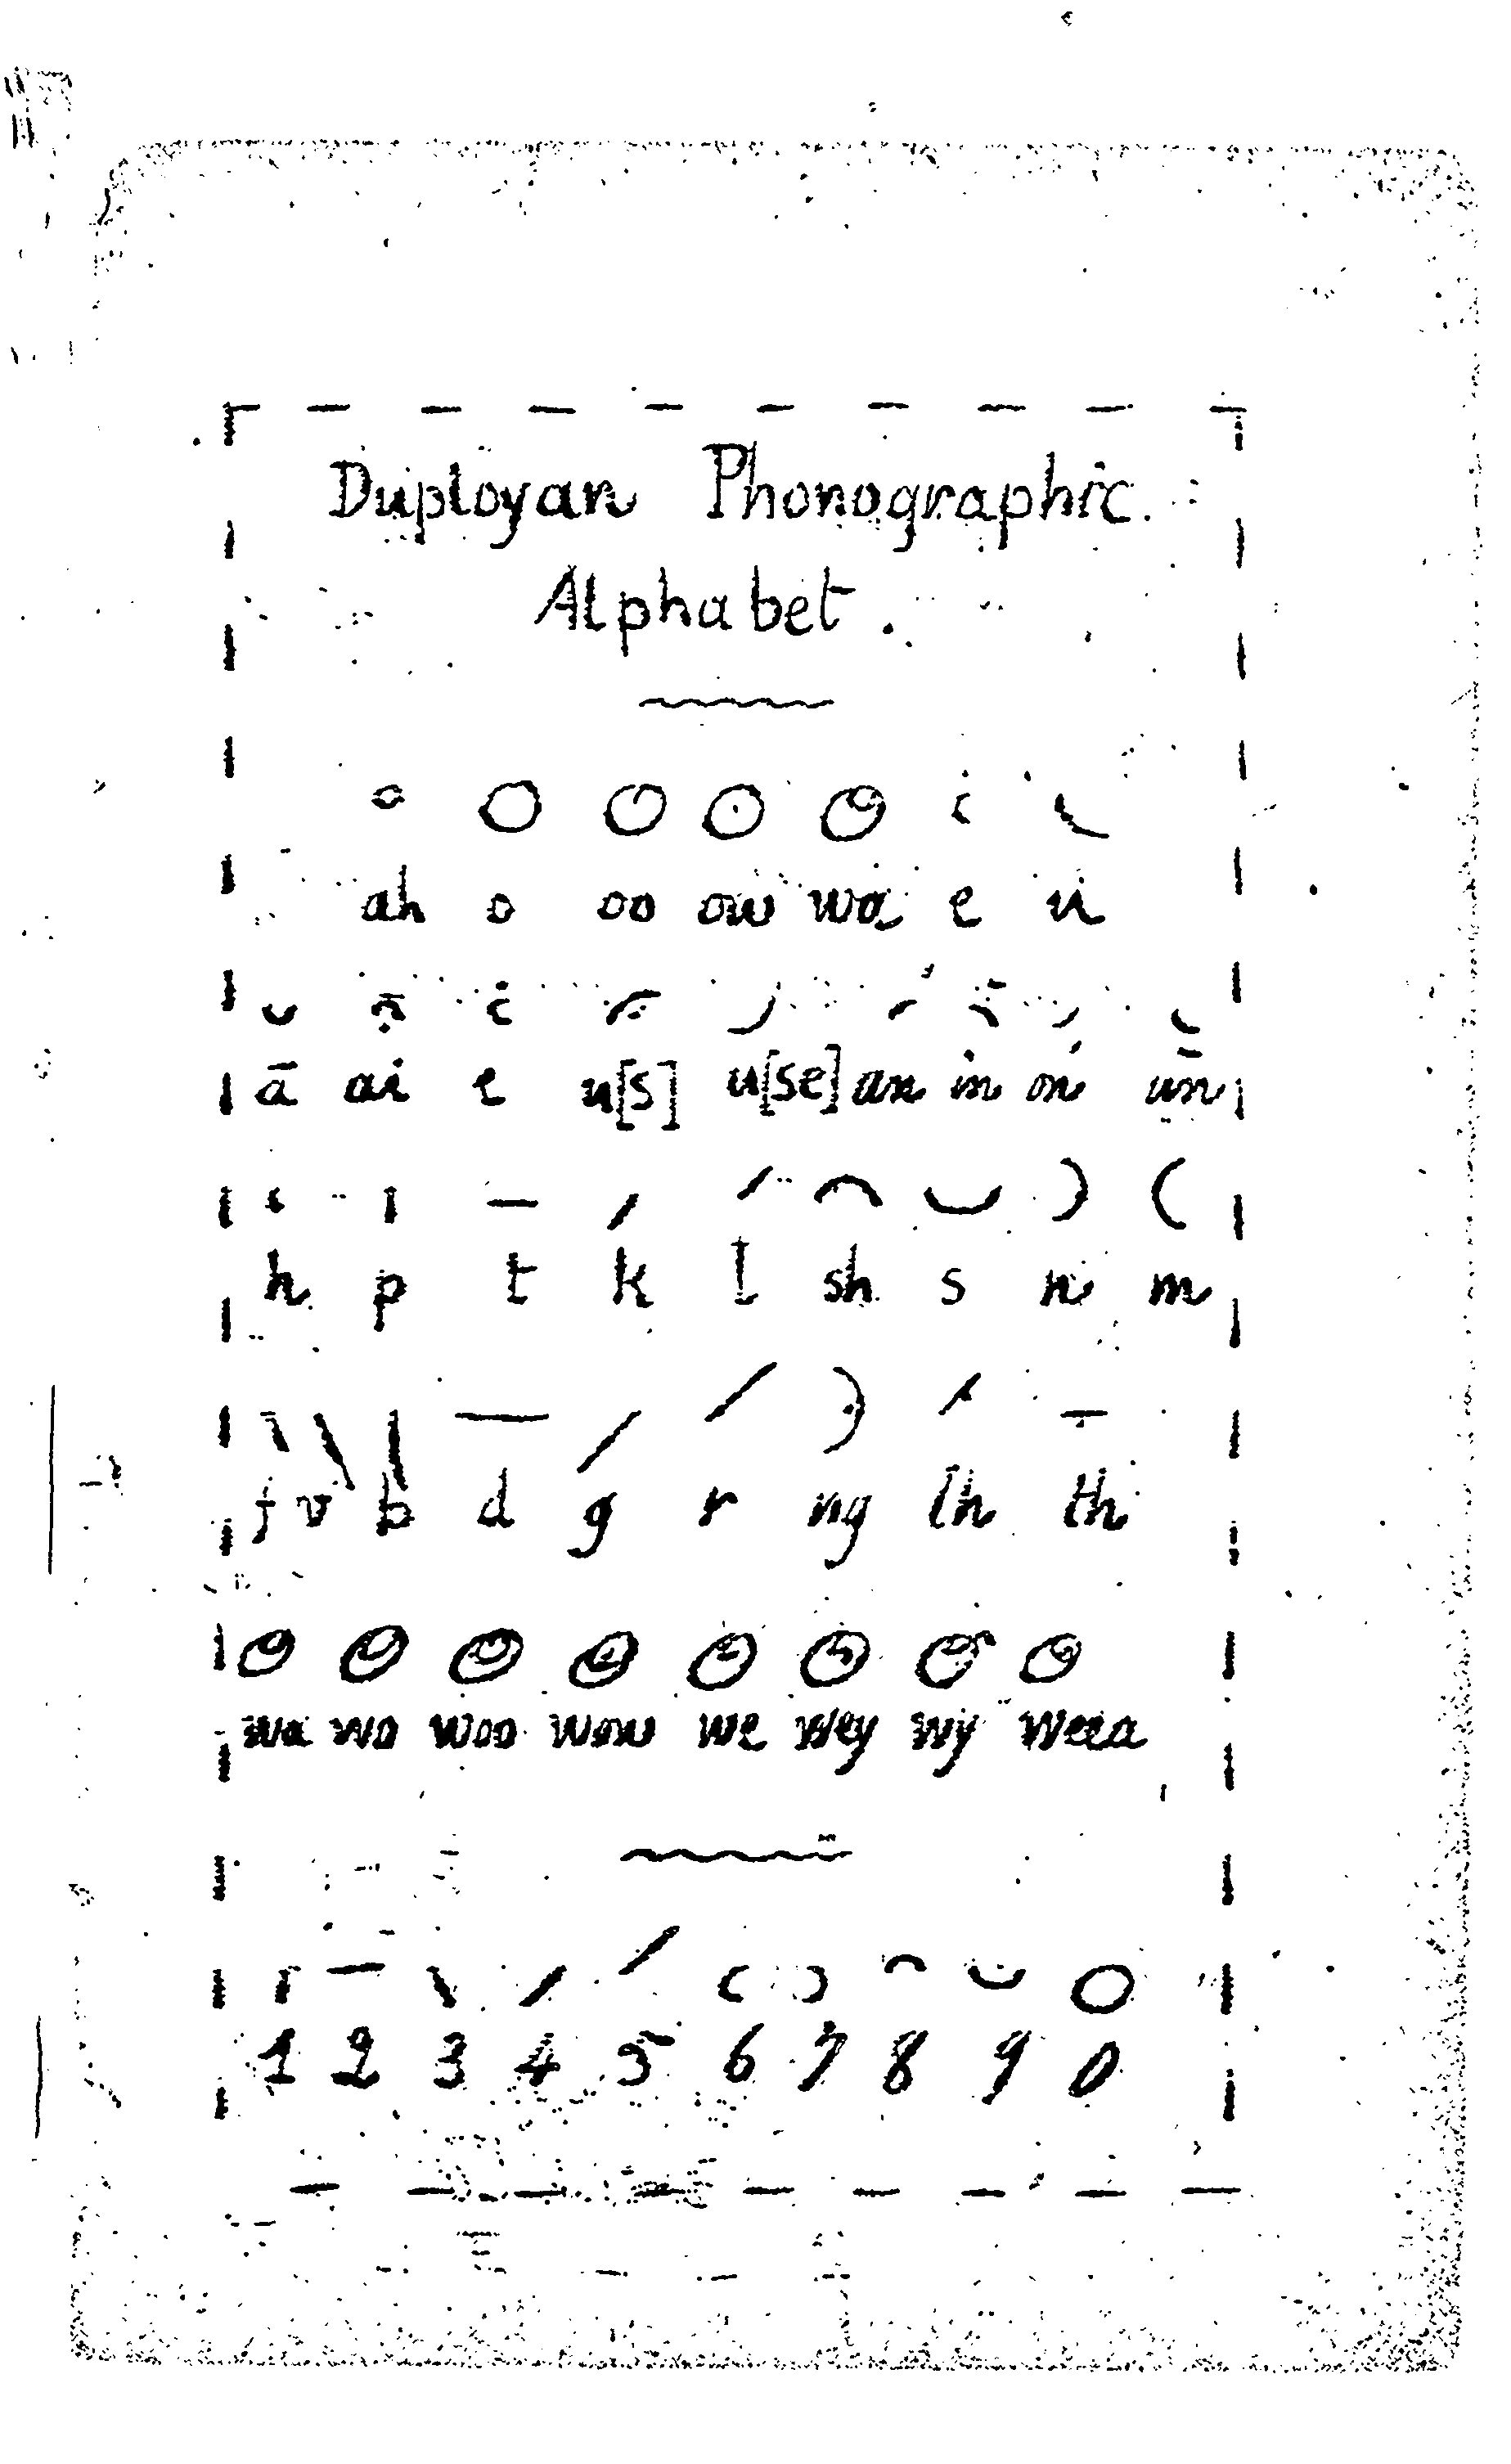 Duployan Phonographic
Alphabet.
ah o oo ow wa e u
ā ai e u[s] u[se] an in on un
h p t k l sh s n m
f v b d g r ng lh th
wa wo woo wow we wey wy weea
1 2 3 4 5 6 7 8 9 0